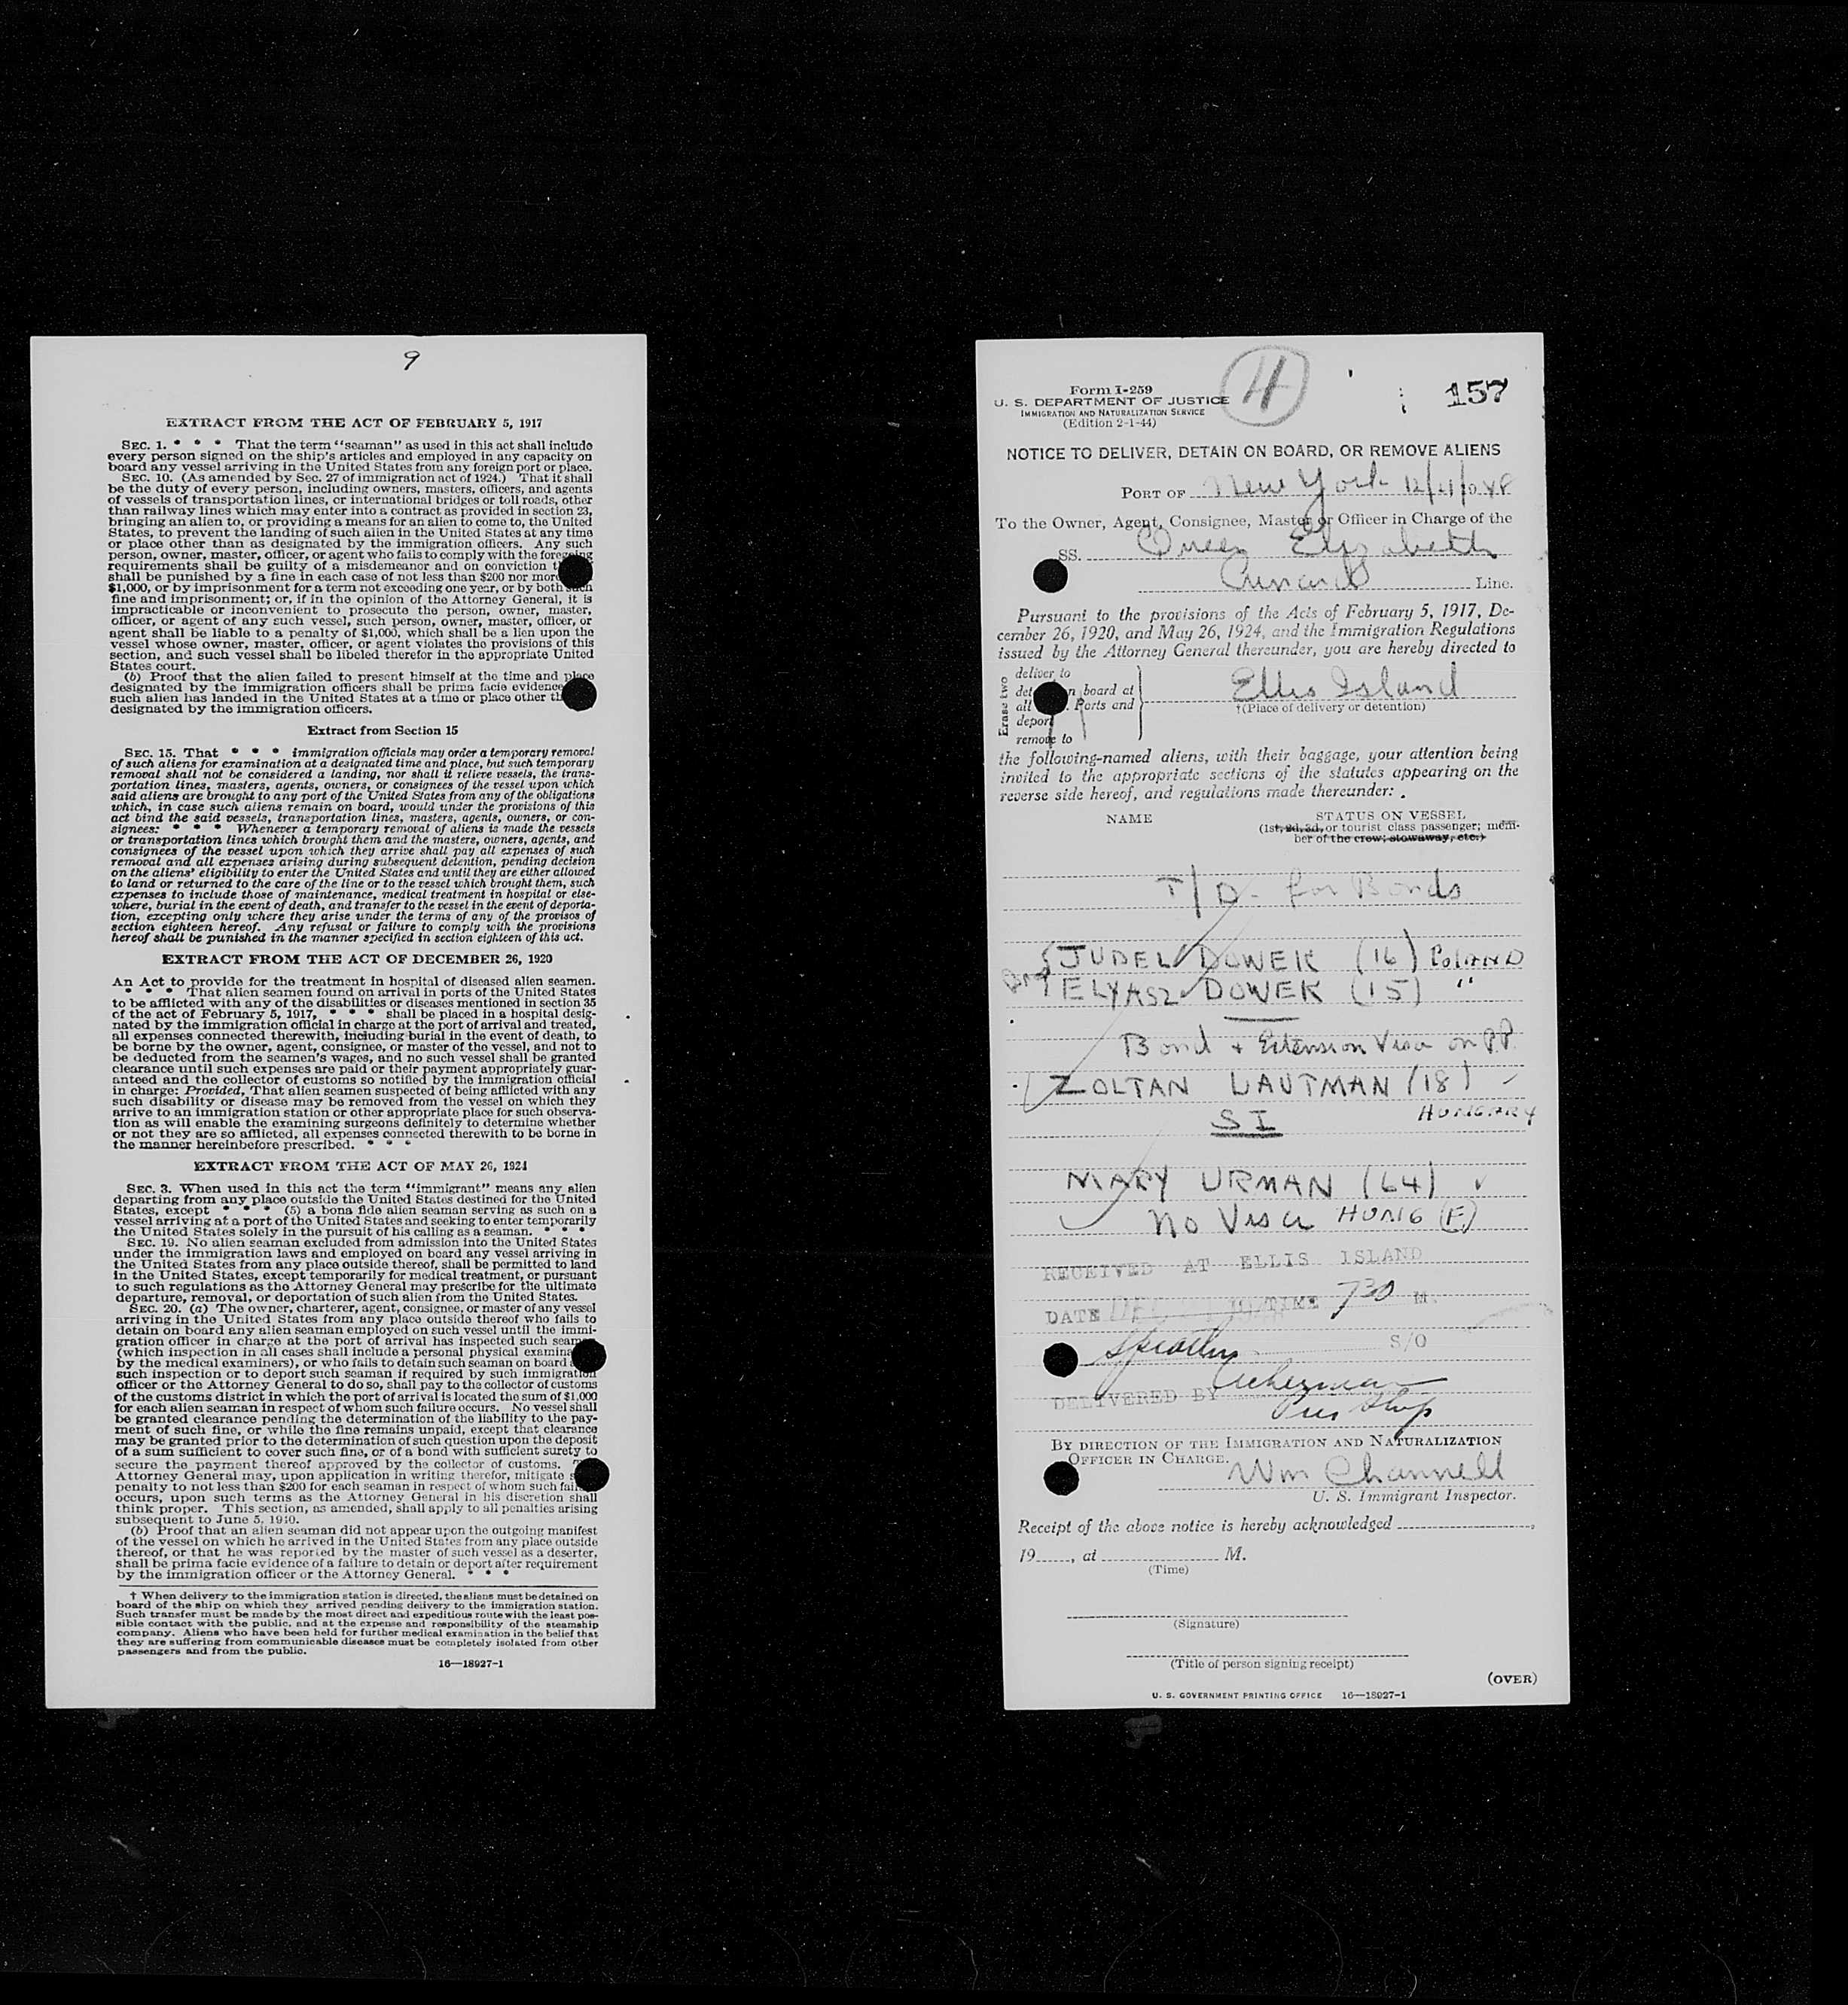 9
EXTRACT FROM THE ACT OF FEBRUARY 5, 1917
SEC. 1. * * * That the term "seaman" as used in this act shall include
every person signed on the ship's articles and employed in any capacity on
board any vessel arriving in the United States from any foreign port or place.
SEC. 10. (As amended by Sec. 27 of immigration act of 1924.) That it shall
be the duty of every person, including owners, masters, officers, and agents
of vessels of transportation lines, or international bridges or toll roads, other
than railway lines which may enter into a contract as provided in section 23,
bringing an alien to, or providing a means for an alien to come to, the United
States, to prevent the landing of such alien in the United States at any time
or place other than as designated by the immigration officers. Any such
person, owner, master, officer, or agent who fails to comply with the foregoing
requirements shall be guilty of a misdemeanor and on conviction
shall be punished by a fine in each case of not less than $200 nor more
$1,000, or by imprisonment for a term not exceeding one year, or by both such
fine and imprisonment; or, if in the opinion of the Attorney General, it is
impracticable or inconvenient to prosecute the person, owner, master,
officer, or agent of any such vessel, such person, owner, master, officer, or
agent shall be liable to a penalty of $1,000, which shall be a lien upon the
vessel whose owner, master, officer, or agent violates the provisions of this
section, and such vessel shall be libeled therefor in the appropriate United
States court.
(b) Proof that the alien failed to present himself at the time and place
designated by the immigration officers shall be prima facie evidence
such alien has landed in the United States at a time or place other
designated by the immigration officers.
Extract from Section 15
SEC. 15. That * * * immigration officials may order a temporary removal
of such aliens for examination at a designated time and place, but such temporary
removal shall not be considered a landing, nor shall it relieve vessels, the trans-
portation lines, masters, agents, owners, or consignees of the vessel upon which
said aliens are brought to any port of the United States from any of the obligations
which, in case such aliens remain on board, would under the provisions of this
act bind the said vessels, transportation lines, masters, agents, owners, or con-
signees: * * * Whenever a temporary removal of aliens is made the vessels
or transportation lines which brought them and the masters, owners, agents, and
consignees of the vessel upon which they arrive shall pay all expenses of such
removal and all expenses arising during subsequent detention, pending decision
on the aliens' eligibility to enter the United States and until they are either allowed
to land or returned to the care of the line or to the vessel which brought them, such
expenses to include those of maintenance, medical treatment in hospital or else-
where, burial in the event of death, and transfer to the vessel in the event of deporta-
tion, excepting only where they arise under the terms of any of the provisos of
section eighteen hereof. Any refusal or failure to comply with the provisions
hereof shall be punished in the manner specified in section eighteen of this act.
EXTRACT FROM THE ACT OF DECEMBER 26, 1920
An Act to provide for the treatment in hospital of diseased alien seamen.
* * * That alien seamen found on arrival in ports of the United States
to be afflicted with any of the disabilities or diseases mentioned in section 35
of the act of February 5, 1917, * * * shall be placed in a hospital desig-
nated by the immigration official in charge at the port of arrival and treated,
all expenses connected therewith, including burial in the event of death, to
be borne by the owner, agent, consignee, or master of the vessel, and not to
be deducted from the seamen's wages, and no such vessel shall be granted
clearance until such expenses are paid or their payment appropriately guar-
anteed and the collector of customs so notified by the immigration official
in charge: Provided, That alien seamen suspected of being afflicted with any
such disability or disease may be removed from the vessel on which they
arrive to an immigration station or other appropriate place for such observa-
tion as will enable the examining surgeons definitely to determine whether
or not they are so afflicted, all expenses connected therewith to be borne in
the manner hereinbefore prescribed. * * *
EXTRACT FROM THE ACT OF MAY 26, 1924
SEC. 3. When used in this act the term "immigrant" means any alien
departing from any place outside the United States destined for the United
States, except * * * (5) a bona fide alien seaman serving as such on a
vessel arriving at a port of the United States and seeking to enter temporarily
the United States solely in the pursuit of his calling as a seaman. * * *
SEC. 19. No alien seaman excluded from admission into the United States
under the immigration laws and employed on board any vessel arriving in
the United States from any place outside thereof, shall be permitted to land
in the United States, except temporarily for medical treatment, or pursuant
to such regulations as the Attorney General may prescribe for the ultimate
departure, removal, or deportation of such alien from the United States.
SEC. 20. (a) The owner, charterer, agent, consignee, or master of any vessel
arriving in the United States from any place outside thereof who fails to
detain on board any alien seaman employed on such vessel until the immi-
gration officer in charge at the port of arrival has inspected such seaman
(which inspection in all cases shall include a personal physical examina
by the medical examiners), or who fails to detain such seaman on board
such inspection or to deport such seaman if required by such immigration
officer or the Attorney General to do so, shall pay to the collector of customs
of the customs district in which the port of arrival is located the sum of $1,000
for each alien seaman in respect of whom such failure occurs. No vessel shall
be granted clearance pending the determination of the liability to the pay-
ment of such fine, or while the fine remains unpaid, except that clearance
may be granted prior to the determination of such question upon the deposit
of a sum sufficient to cover such fine, or of a bond with sufficient surety to
secure the payment thereof approved by the collector of customs.
Attorney General may, upon application in writing therefor, mitigate
penalty to not less than $200 for each seaman in respect of whom such
occurs, upon such terms as the Attorney General in his discretion shall
think proper. This section, as amended, shall apply to all penalties arising
subsequent to June 5, 1940.
(b) Proof that an alien seaman did not appear upon the outgoing manifest
of the vessel on which he arrived in the United States from any place outside
thereof, or that he was reported by the master of such vessel as a deserter,
shall be prima facie evidence of a failure to detain or deport after requirement
by the immigration officer or the Attorney General. * * *
† When delivery to the immigration station is directed, the aliens must be detained on
board of the ship on which they arrived pending delivery to the immigration station.
Such transfer must be made by the most direct and expeditious route with the least pos-
sible contact with the public, and at the expense and responsibility of the steamship
company. Aliens who have been held for further medical examination in the belief that
they are suffering from communicable diseases must be completely isolated from other
passengers and from the public.
16—18927-1
Form I-259
U. S. DEPARTMENT OF JUSTICE
IMMIGRATION AND NATURALIZATION SERVICE
(Edition 2-1-44)
4
157
NOTICE TO DELIVER, DETAIN ON BOARD, OR REMOVE ALIENS
PORT OF New York 12/21/1948
To the Owner, Agent, Consignee, Master or Officer in Charge of the
SS. Queen Elizabeth
Cunard Line.
Pursuant to the provisions of the Acts of February 5, 1917, De-
cember 26, 1920, and May 26, 1924, and the Immigration Regulations
issued by the Attorney General thereunder, you are hereby directed to
Erase two
deliver to
on board at
all Ports and
deport
remove to
Ellis Island
†(Place of delivery or detention)
the following-named aliens, with their baggage, your attention being
invited to the appropriate sections of the statutes appearing on the
reverse side hereof, and regulations made thereunder:
NAME STATUS ON VESSEL
(1st, 2d, 3d, or tourist class passenger; mem-
ber of the crew; stowaway, etc.)
T/D for Bonds
JUDEL DOWEK (16) POLAND
ELYASZ DOWEK (15) "
Bond + Extension Visa on P.P.
ZOLTAN LAUTMAN (18)
SI HUNGARY
MARY URMAN (64)
No Visa HUNG (F)
RECEIVED AT ELLIS ISLAND
DATE DEC 21 1948 TIME 730 M.
S/O
DELIVERED BY Ackerman
BY DIRECTION OF THE IMMIGRATION AND NATURALIZATION
OFFICER IN CHARGE.
Wm Channell
U. S. Immigrant Inspector.
Receipt of the above notice is hereby acknowledged
19......, at M.
(Time)
(Signature)
(Title of person signing receipt)
(OVER)
U. S. GOVERNMENT PRINTING OFFICE 16—18927-1